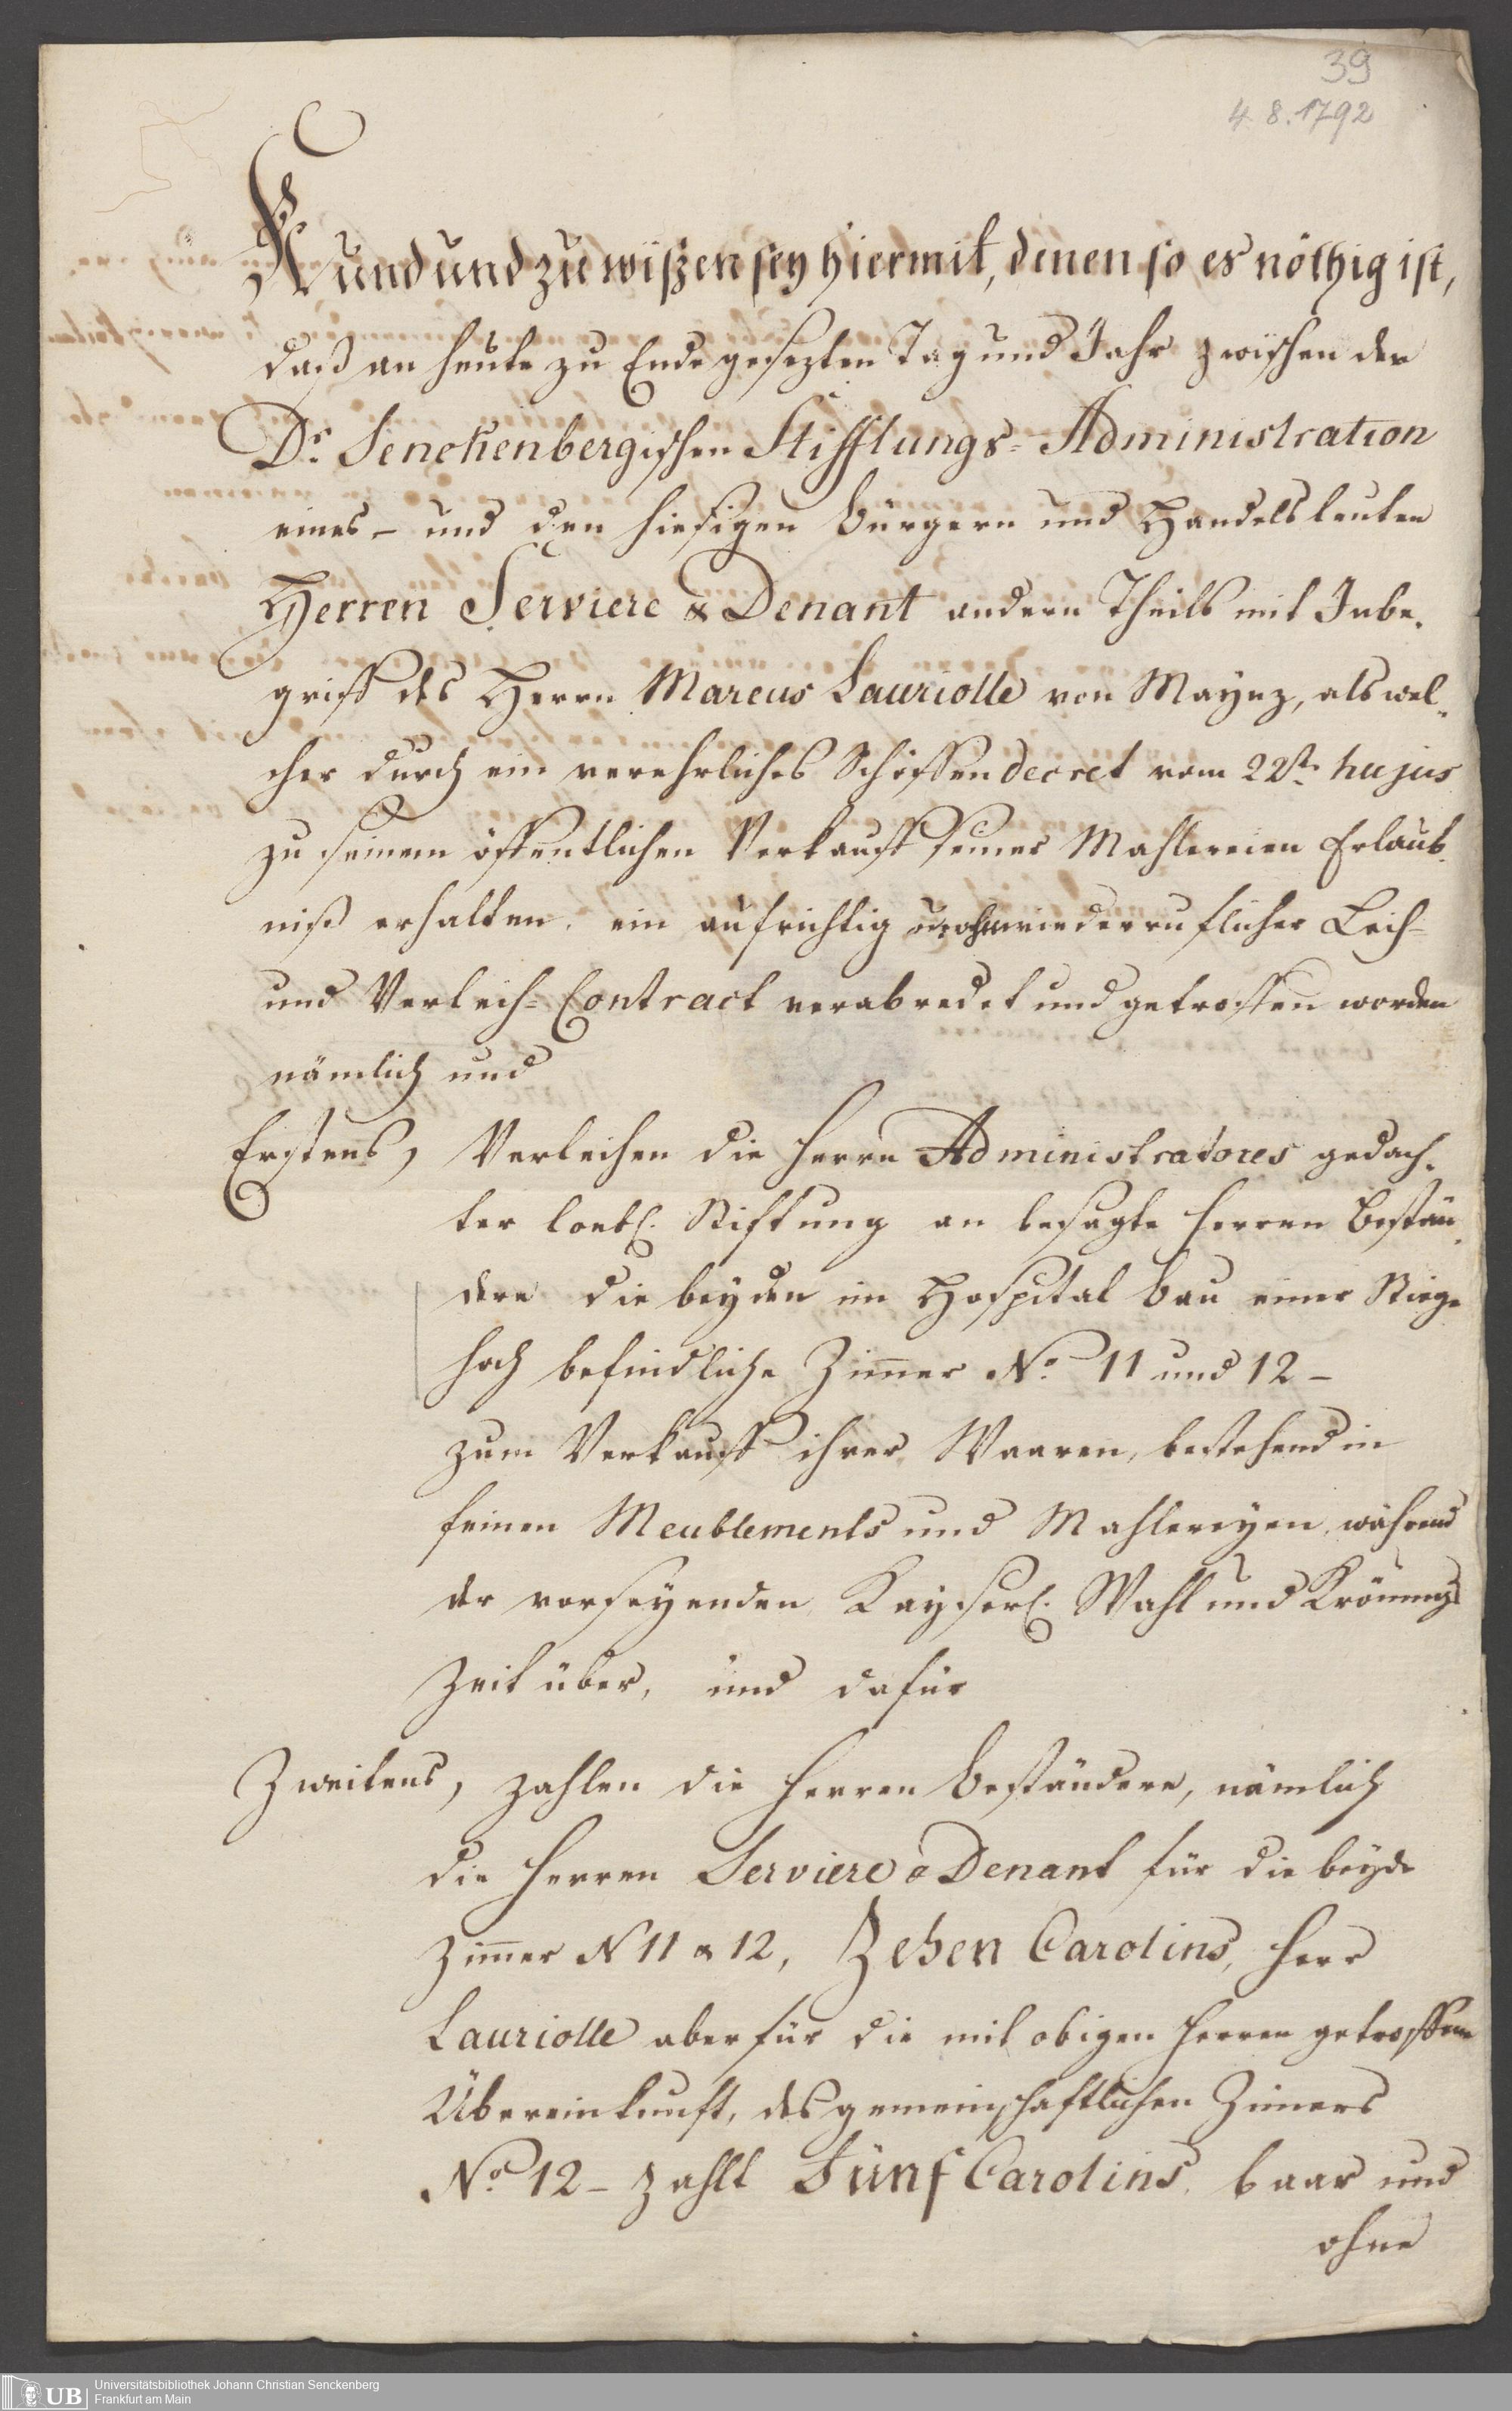 39
4. 8. 1792
Kund und zu wißen sey hiermit, denen so es nöthig ist,
daß an heute zu Ende gesezten Tag und Jahr zwischen der
Dr. Senckenbergischen Stifftungs-Administration
eines – und den hiesigen Bürgern und Handelsleuten
Herren Serviere & Denant andern Theils mit Inbe-
griff des Herrn Marcus Lauriolle von Maynz, als wel-
cher durch ein verehrliches Schöffendecret vom 22t. hujus
zu seinem öffentlichen Verkauff seiner Mahlereien Erlaub-
niß erhalten, ein aufrichtig wiederruflicher Leih-
und Verleih-Contract verabredet und getroffen worden
nämlich und
Erstens, Verleihen die Herrn Administratores gedach-
ter loebl. Stiftung an besagte Herren Bestän-
dere die beyden im Hospital Bau einer Stiege
hoch befindliche Zimmer No. 11 und 12 –
zum Verkauff ihrer Waaren, bestehend in
feinen Meublements und Mahlereyen, während
der vorseyenden Kayserl. Wahl und Krönungs
Zeit über, und dafür
Zweitens, zahlen die Herren Beständere, nämlich
die Herren Serviere & Denant für die beyde
Zimmer N 11 & 12, Zehen Carolins, Herr
Lauriolle aber für die mit obigen Herren getroffene
Übereinkunft, des gemeinschaftlichen Zimers
No. 12 – zahlt Fünf Carolins, baar und
ohne
UB Universitätsbibliothek Johann Christian Senckenberg
Frankfurt am Main